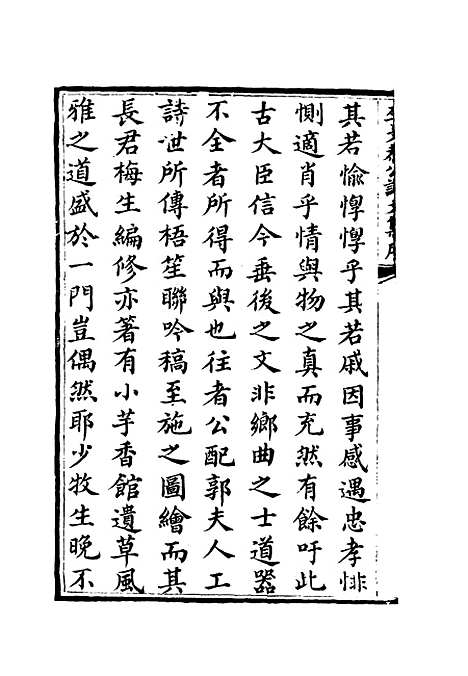 其若愉惸惸乎其若戚因事感遇忠孝悱
惻適肖乎情與物之真而充然有餘吁此
古大臣信今垂後之文非鄉曲之士道器
不全者所得而與也往者公配郭夫人工
詩世所傳梧笙聯吟稿至施之圖繪而其
長君梅生編修亦著有小芋香館遺草風
雅之道盛於一門豈偶然耶少牧生晚不